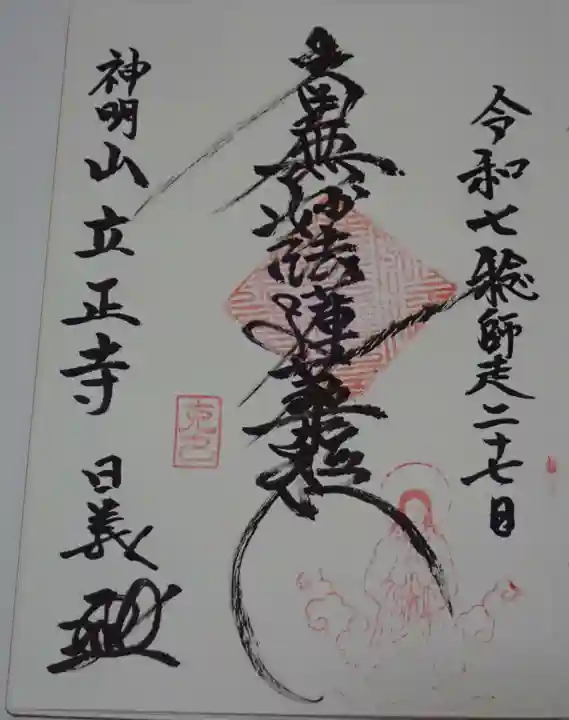 令和七稔師走二十七日
南無妙法蓮華経
神明山立正寺
日義